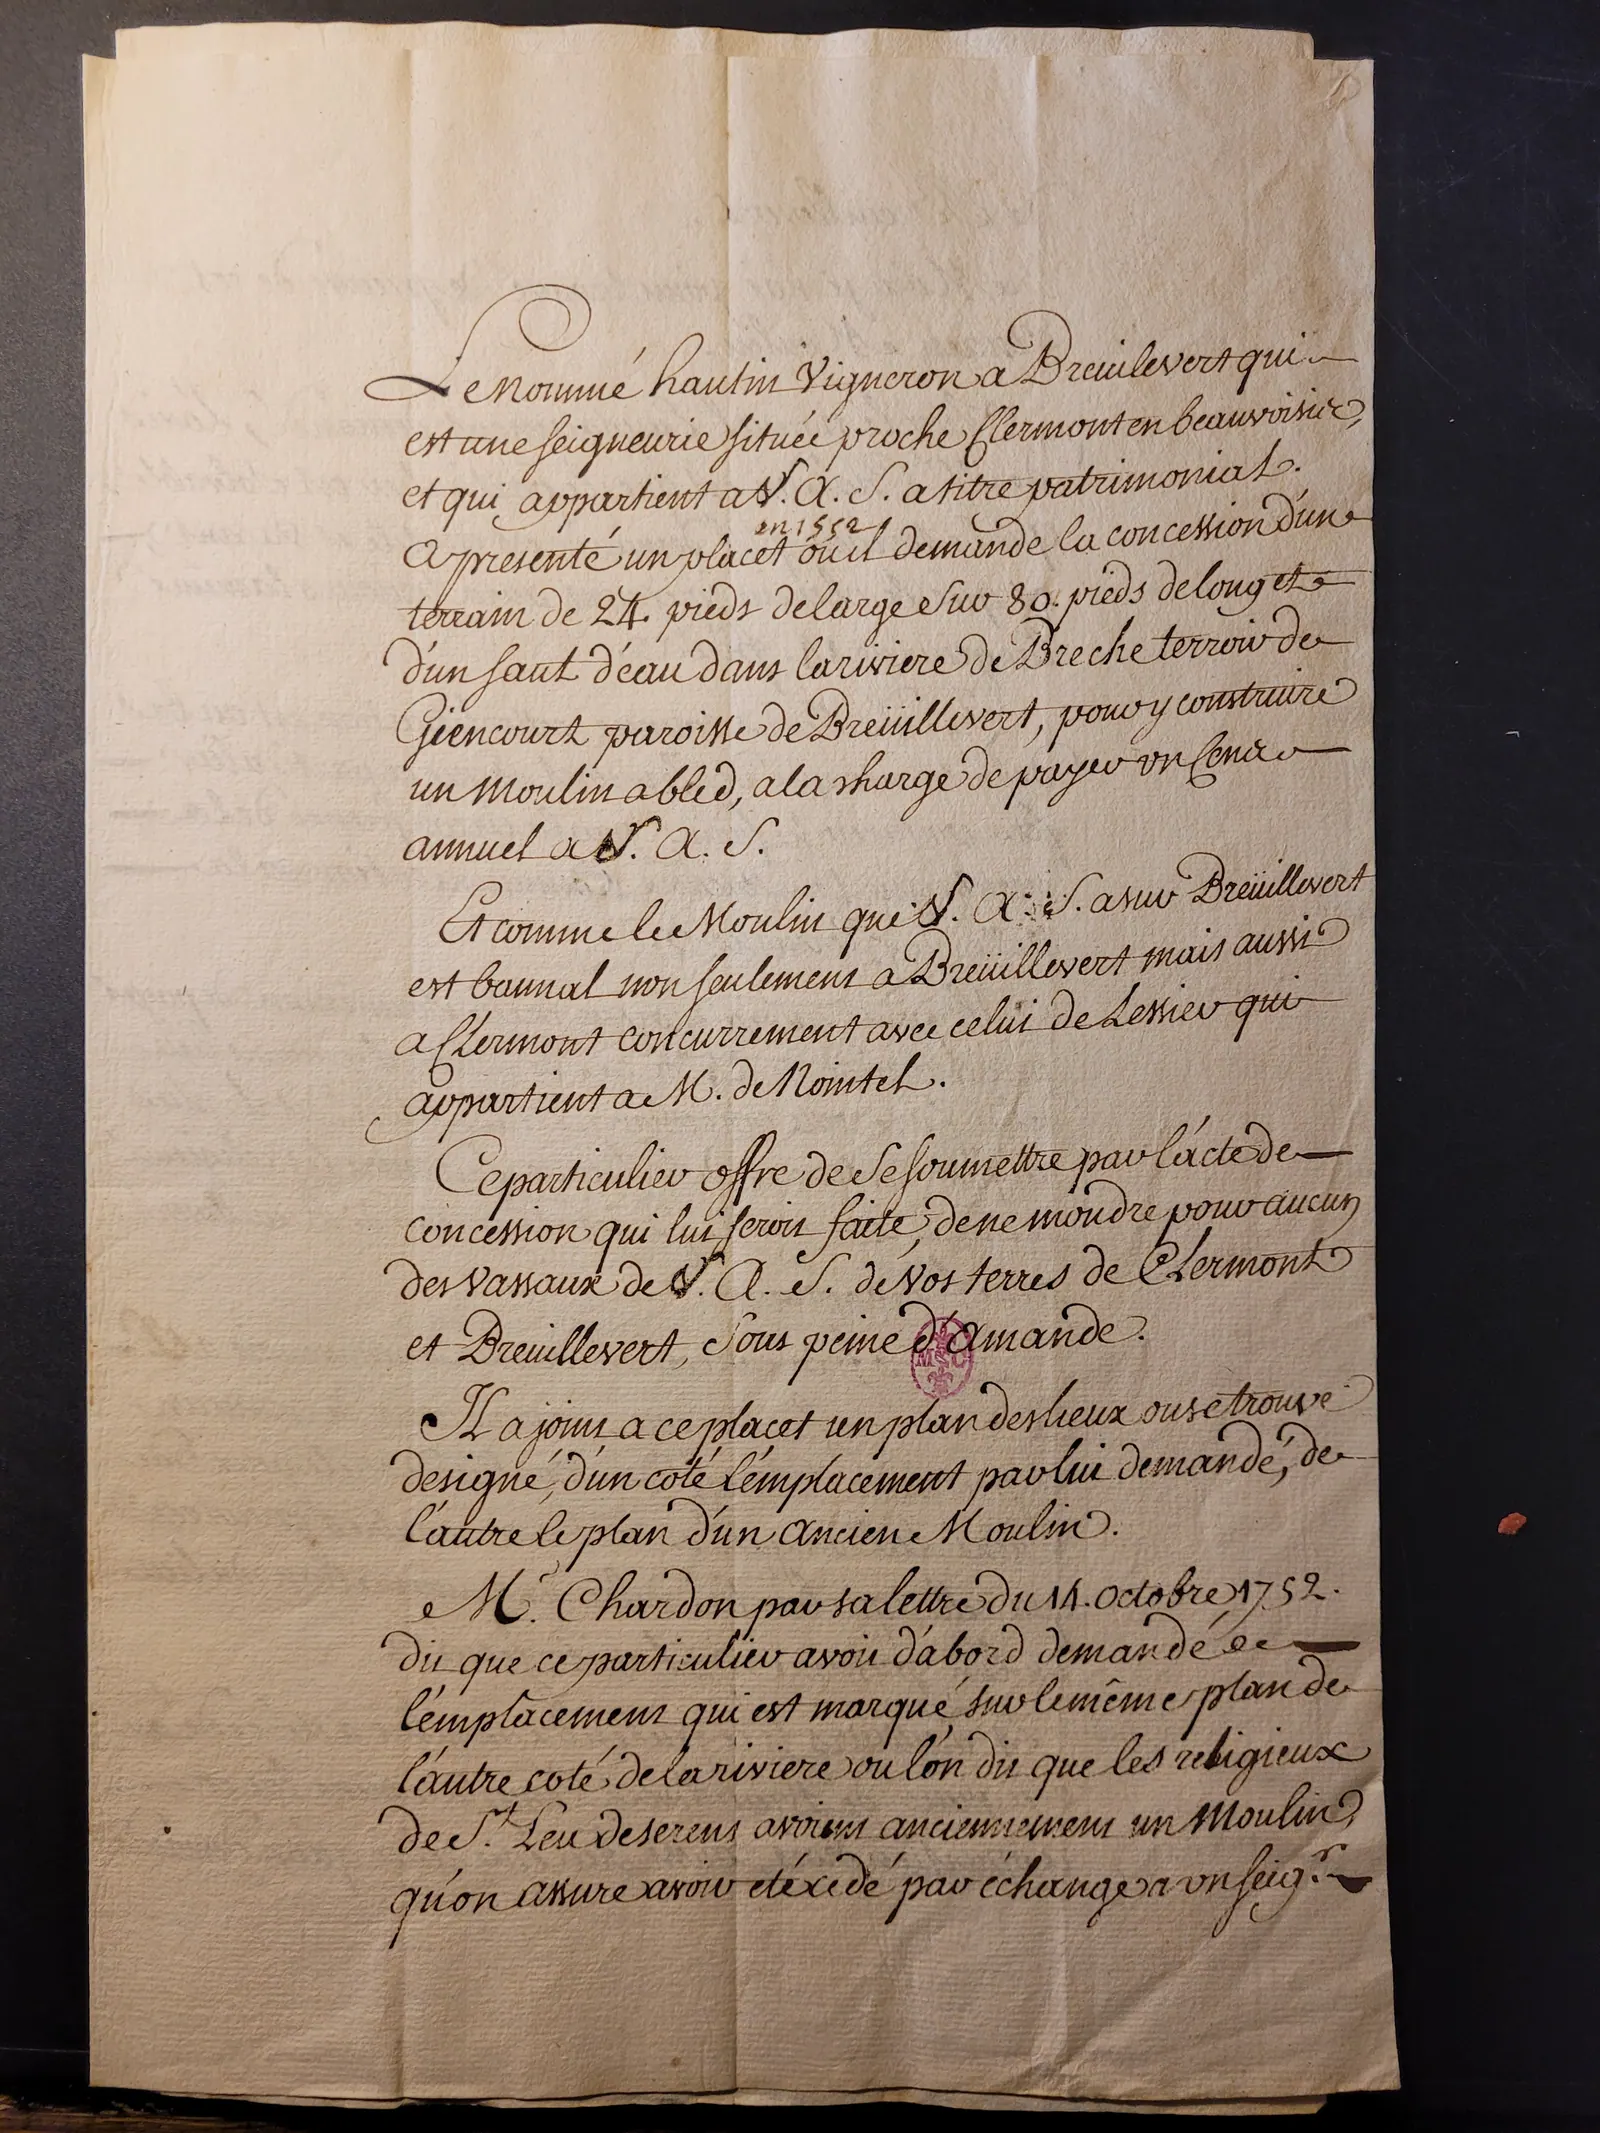 Le Nommé hautin Vigneron a Breuilevert qui
est une seigneurie située proche Clermont en beauvoisie,
et qui appartient a V. A. S. a titre patrimonial.
en 1552
a presenté un placet ou il demande la concession d'un
terrain de 24. pieds de large sur 80. pieds de long et
d'un saut d'eau dans la riviere de Breche terroir de
Giencourt paroisse de Breüillevert, pour y construire
un moulin a bled, a la charge de payer un Cens
annuel a V. A. S.
Et comme le Moulin que V. A. S. a sur Breüillevert
est bannal non seulement a Breüillevert mais aussi
a Clermont concurrement avec celui de Lessier qui
appartient a M. de Nointel.
Ce particulier offre de se soumettre par l'acte de
concession qui lui seroit faite, de ne moudre pour aucun
des vassaux de V. A. S. de vos terres de Clermont
et Breuillevert, sous peine d'amande.
MSC
Il a joint a ce placet un plan des lieux ou se trouve
designé, d'un coté l'emplacement par lui demandé, de
l'autre le plan d'un ancien Moulin.
Mr. Chardon par sa lettre du 14. octobre 1752.
dit que ce particulier avoit d'abord demandé
l'emplacement qui est marqué sur le même plan de
l'autre coté de la riviere ou l'on dit que les religieux
de St. Leu deserens avoient anciennement un Moulin
qu'on assure avoir eté cedé par échange a un seigr.